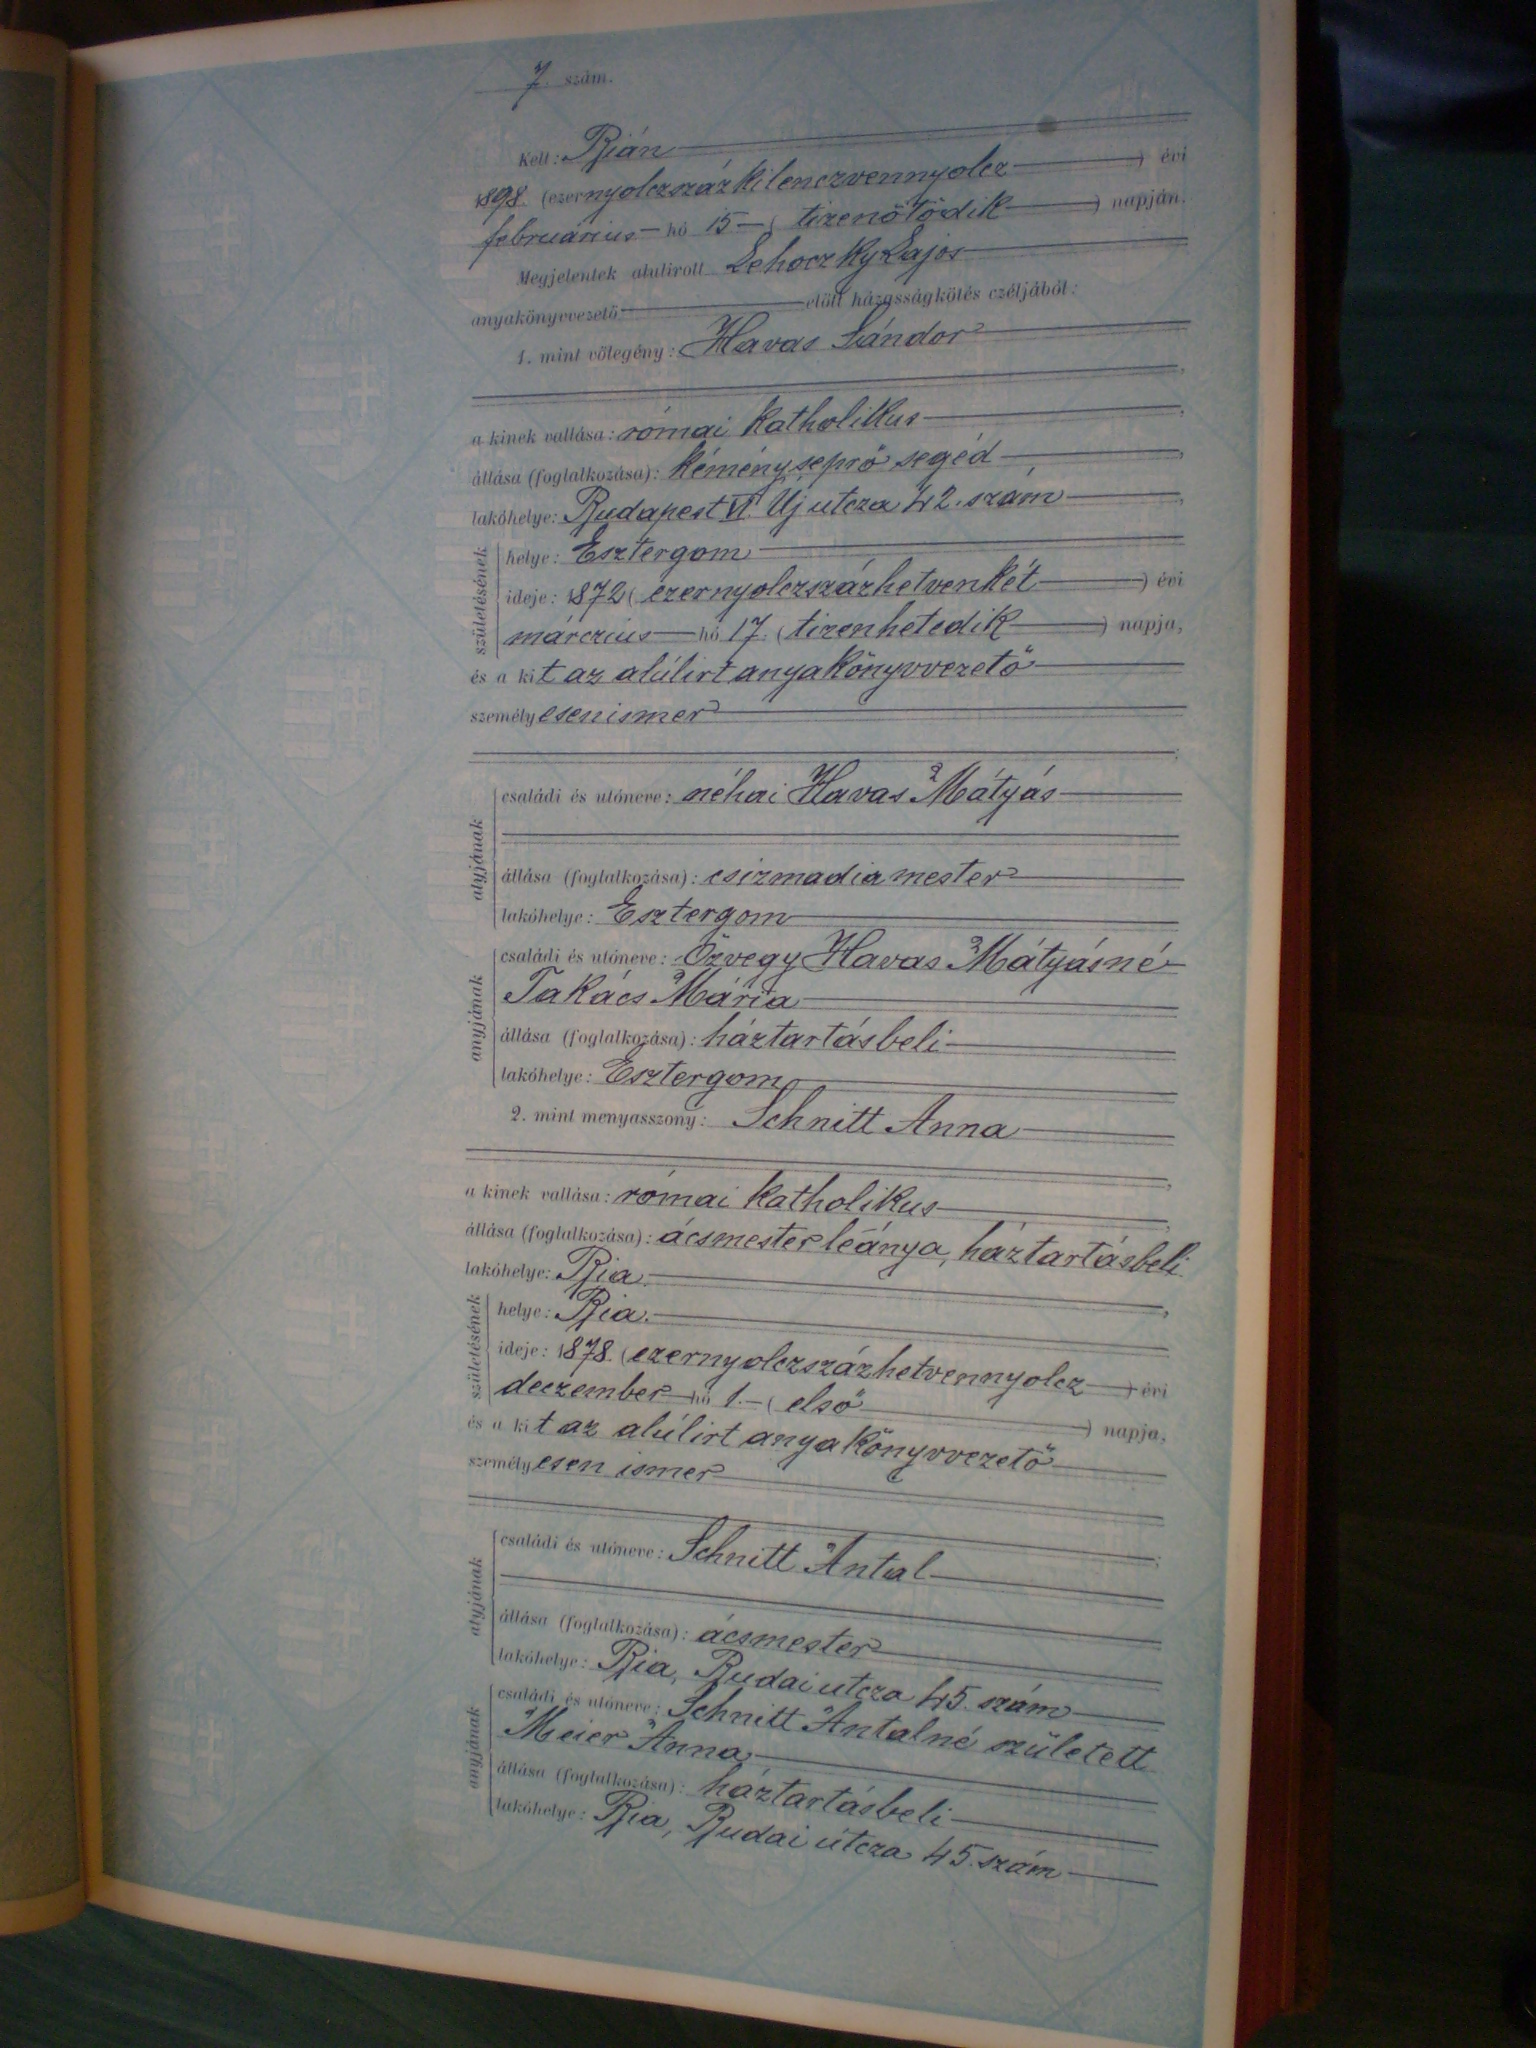 7. szám.
Kelt: Bián
1898. (ezernyolczszázkilenczvennyolcz) évi
februárius hó 15 (tizenötödik) napján.
Megjelentek alulirott Lehoczky Lajos
anyakönyvvezető előtt házasságkötés czéljából:
1. mint vőlegény: Havas Sándor
a kinek vallása: római katholikus
állása (foglalkozása): kéményseprő segéd
lakóhelye: Budapest VI. Új utcza 42. szám
születésének
helye: Esztergom
ideje: 1872 (ezernyolczszázhetvenkét) évi
márczius hó 17. (tizenhetedik) napja,
és a kit az alúlirt anyakönyvvezető
személyesen ismer
atyjának
családi és utóneve: néhai Havas Mátyás
állása (foglalkozása): csizmadia mester
lakóhelye: Esztergom
anyjának
családi és utóneve: Özvegy Havas Mátyásné
Takács Mária
állása (foglalkozása): háztartásbeli
lakóhelye: Esztergom
2. mint menyasszony: Schnitt Anna
a kinek vallása: római katholikus
állása (foglalkozása): ácsmester leánya, háztartásbeli
lakóhelye: Bia.
születésének
helye: Bia.
ideje: 1878. (ezernyolczszázhetvennyolcz) évi
deczember hó 1. (első) napja,
és a kit az alúlirt anyakönyvvezető
személyesen ismer
atyjának
családi és utóneve: Schnitt Antal
állása (foglalkozása): ácsmester
lakóhelye: Bia, Budai utcza 45. szám
anyjának
családi és utóneve: Schnitt Antalné született
Meier Anna
állása (foglalkozása): háztartásbeli
lakóhelye: Bia, Budai utcza 45. szám